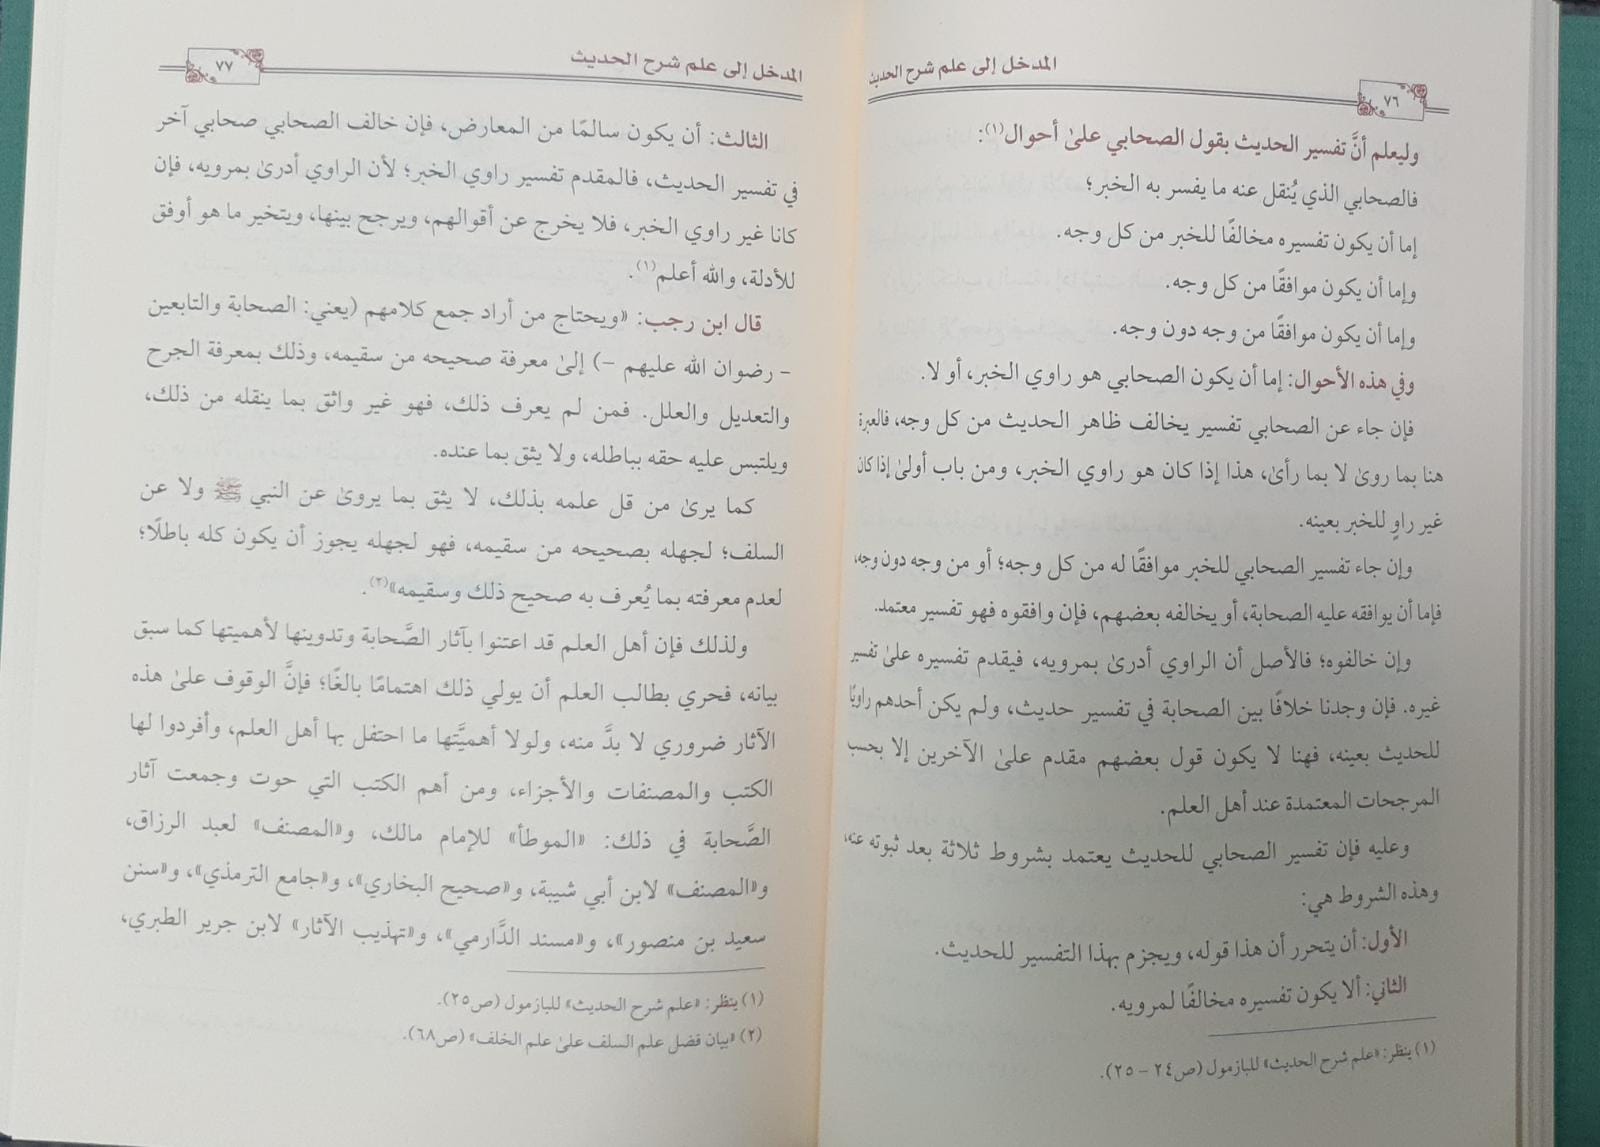 المدخل إلى علم شرح الحديث
٧٦
وليعلم أنَّ تفسير الحديث بقول الصحابي علىٰ أحوال(١):
فالصحابي الذي يُنقل عنه ما يفسر به الخبر؛
إما أن يكون تفسيره مخالفًا للخبر من كل وجه.
وإما أن يكون موافقًا من كل وجه.
وإما أن يكون موافقًا من وجه دون وجه.
وفي هذه الأحوال: إما أن يكون الصحابي هو راوي الخبر، أو لا.
فإن جاء عن الصحابي تفسير يخالف ظاهر الحديث من كل وجه، فالعبرة
هنا بما روىٰ لا بما رأىٰ، هذا إذا كان هو راوي الخبر، ومن باب أولىٰ إذا كان
غير راوٍ للخبر بعينه.
وإن جاء تفسير الصحابي للخبر موافقًا له من كل وجه؛ أو من وجه دون وجه،
فإما أن يوافقه عليه الصحابة، أو يخالفه بعضهم، فإن وافقوه فهو تفسير معتمد.
وإن خالفوه؛ فالأصل أن الراوي أدرىٰ بمرويه، فيقدم تفسيره علىٰ تفسير
غيره. فإن وجدنا خلافًا بين الصحابة في تفسير حديث، ولم يكن أحدهم راويًا
للحديث بعينه، فهنا لا يكون قول بعضهم مقدم علىٰ الآخرين إلا بحسب
المرجحات المعتمدة عند أهل العلم.
وعليه فإن تفسير الصحابي للحديث يعتمد بشروط ثلاثة بعد ثبوته عنه،
وهذه الشروط هي:
الأول: أن يتحرر أن هذا قوله، ويجزم بهذا التفسير للحديث.
الثاني: ألا يكون تفسيره مخالفًا لمرويه.
(١) ينظر: «علم شرح الحديث» للبازمول (ص٢٤ – ٢٥).
المدخل إلى علم شرح الحديث
٧٧
الثالث: أن يكون سالمًا من المعارض، فإن خالف الصحابي صحابي آخر
في تفسير الحديث، فالمقدم تفسير راوي الخبر؛ لأن الراوي أدرىٰ بمرويه، فإن
كانا غير راوي الخبر، فلا يخرج عن أقوالهم، ويرجح بينها، ويتخير ما هو أوفق
للأدلة، والله أعلم(١).
قال ابن رجب: «ويحتاج من أراد جمع كلامهم (يعني: الصحابة والتابعين
– رضوان الله عليهم –) إلىٰ معرفة صحيحه من سقيمه، وذلك بمعرفة الجرح
والتعديل والعلل. فمن لم يعرف ذلك، فهو غير واثق بما ينقله من ذلك،
ويلتبس عليه حقه بباطله، ولا يثق بما عنده.
كما يرىٰ من قل علمه بذلك، لا يثق بما يروىٰ عن النبي ﷺ ولا عن
السلف؛ لجهله بصحيحه من سقيمه، فهو لجهله يجوز أن يكون كله باطلًا؛
لعدم معرفته بما يُعرف به صحيح ذلك وسقيمه»(٢).
ولذلك فإن أهل العلم قد اعتنوا بآثار الصَّحابة وتدوينها لأهميتها كما سبق
بيانه، فحري بطالب العلم أن يولي ذلك اهتمامًا بالغًا؛ فإنَّ الوقوف علىٰ هذه
الآثار ضروري لا بدَّ منه، ولولا أهميَّتها ما احتفل بها أهل العلم، وأفردوا لها
الكتب والمصنفات والأجزاء، ومن أهم الكتب التي حوت وجمعت آثار
الصَّحابة في ذلك: «الموطأ» للإمام مالك، و«المصنف» لعبد الرزاق،
و«المصنف» لابن أبي شيبة، و«صحيح البخاري»، و«جامع الترمذي»، و«سنن
سعيد بن منصور»، و«مسند الدَّارمي»، و«تهذيب الآثار» لابن جرير الطبري،
(١) ينظر: «علم شرح الحديث» للبازمول (ص٢٥).
(٢) «بيان فضل علم السلف علىٰ علم الخلف» (ص٦٨).